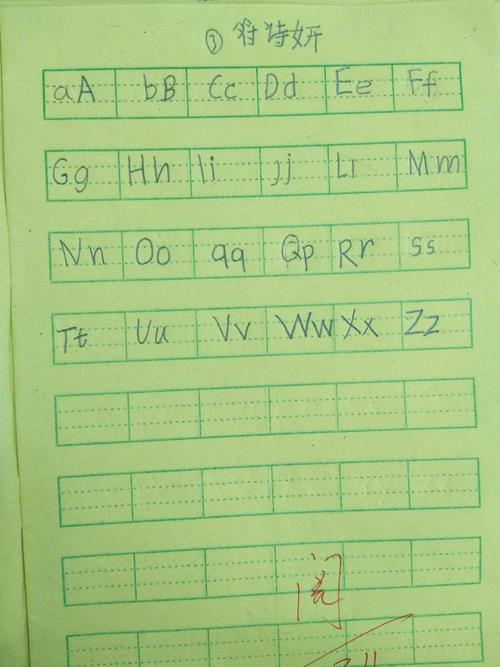 ① 符诗妍
aA bB Cc Dd Ee Ff
Gg Hh Ii Jj Ll Mm
Nn Oo qq Qp Rr Ss
Tt Uu Vv Ww Xx Zz
阅